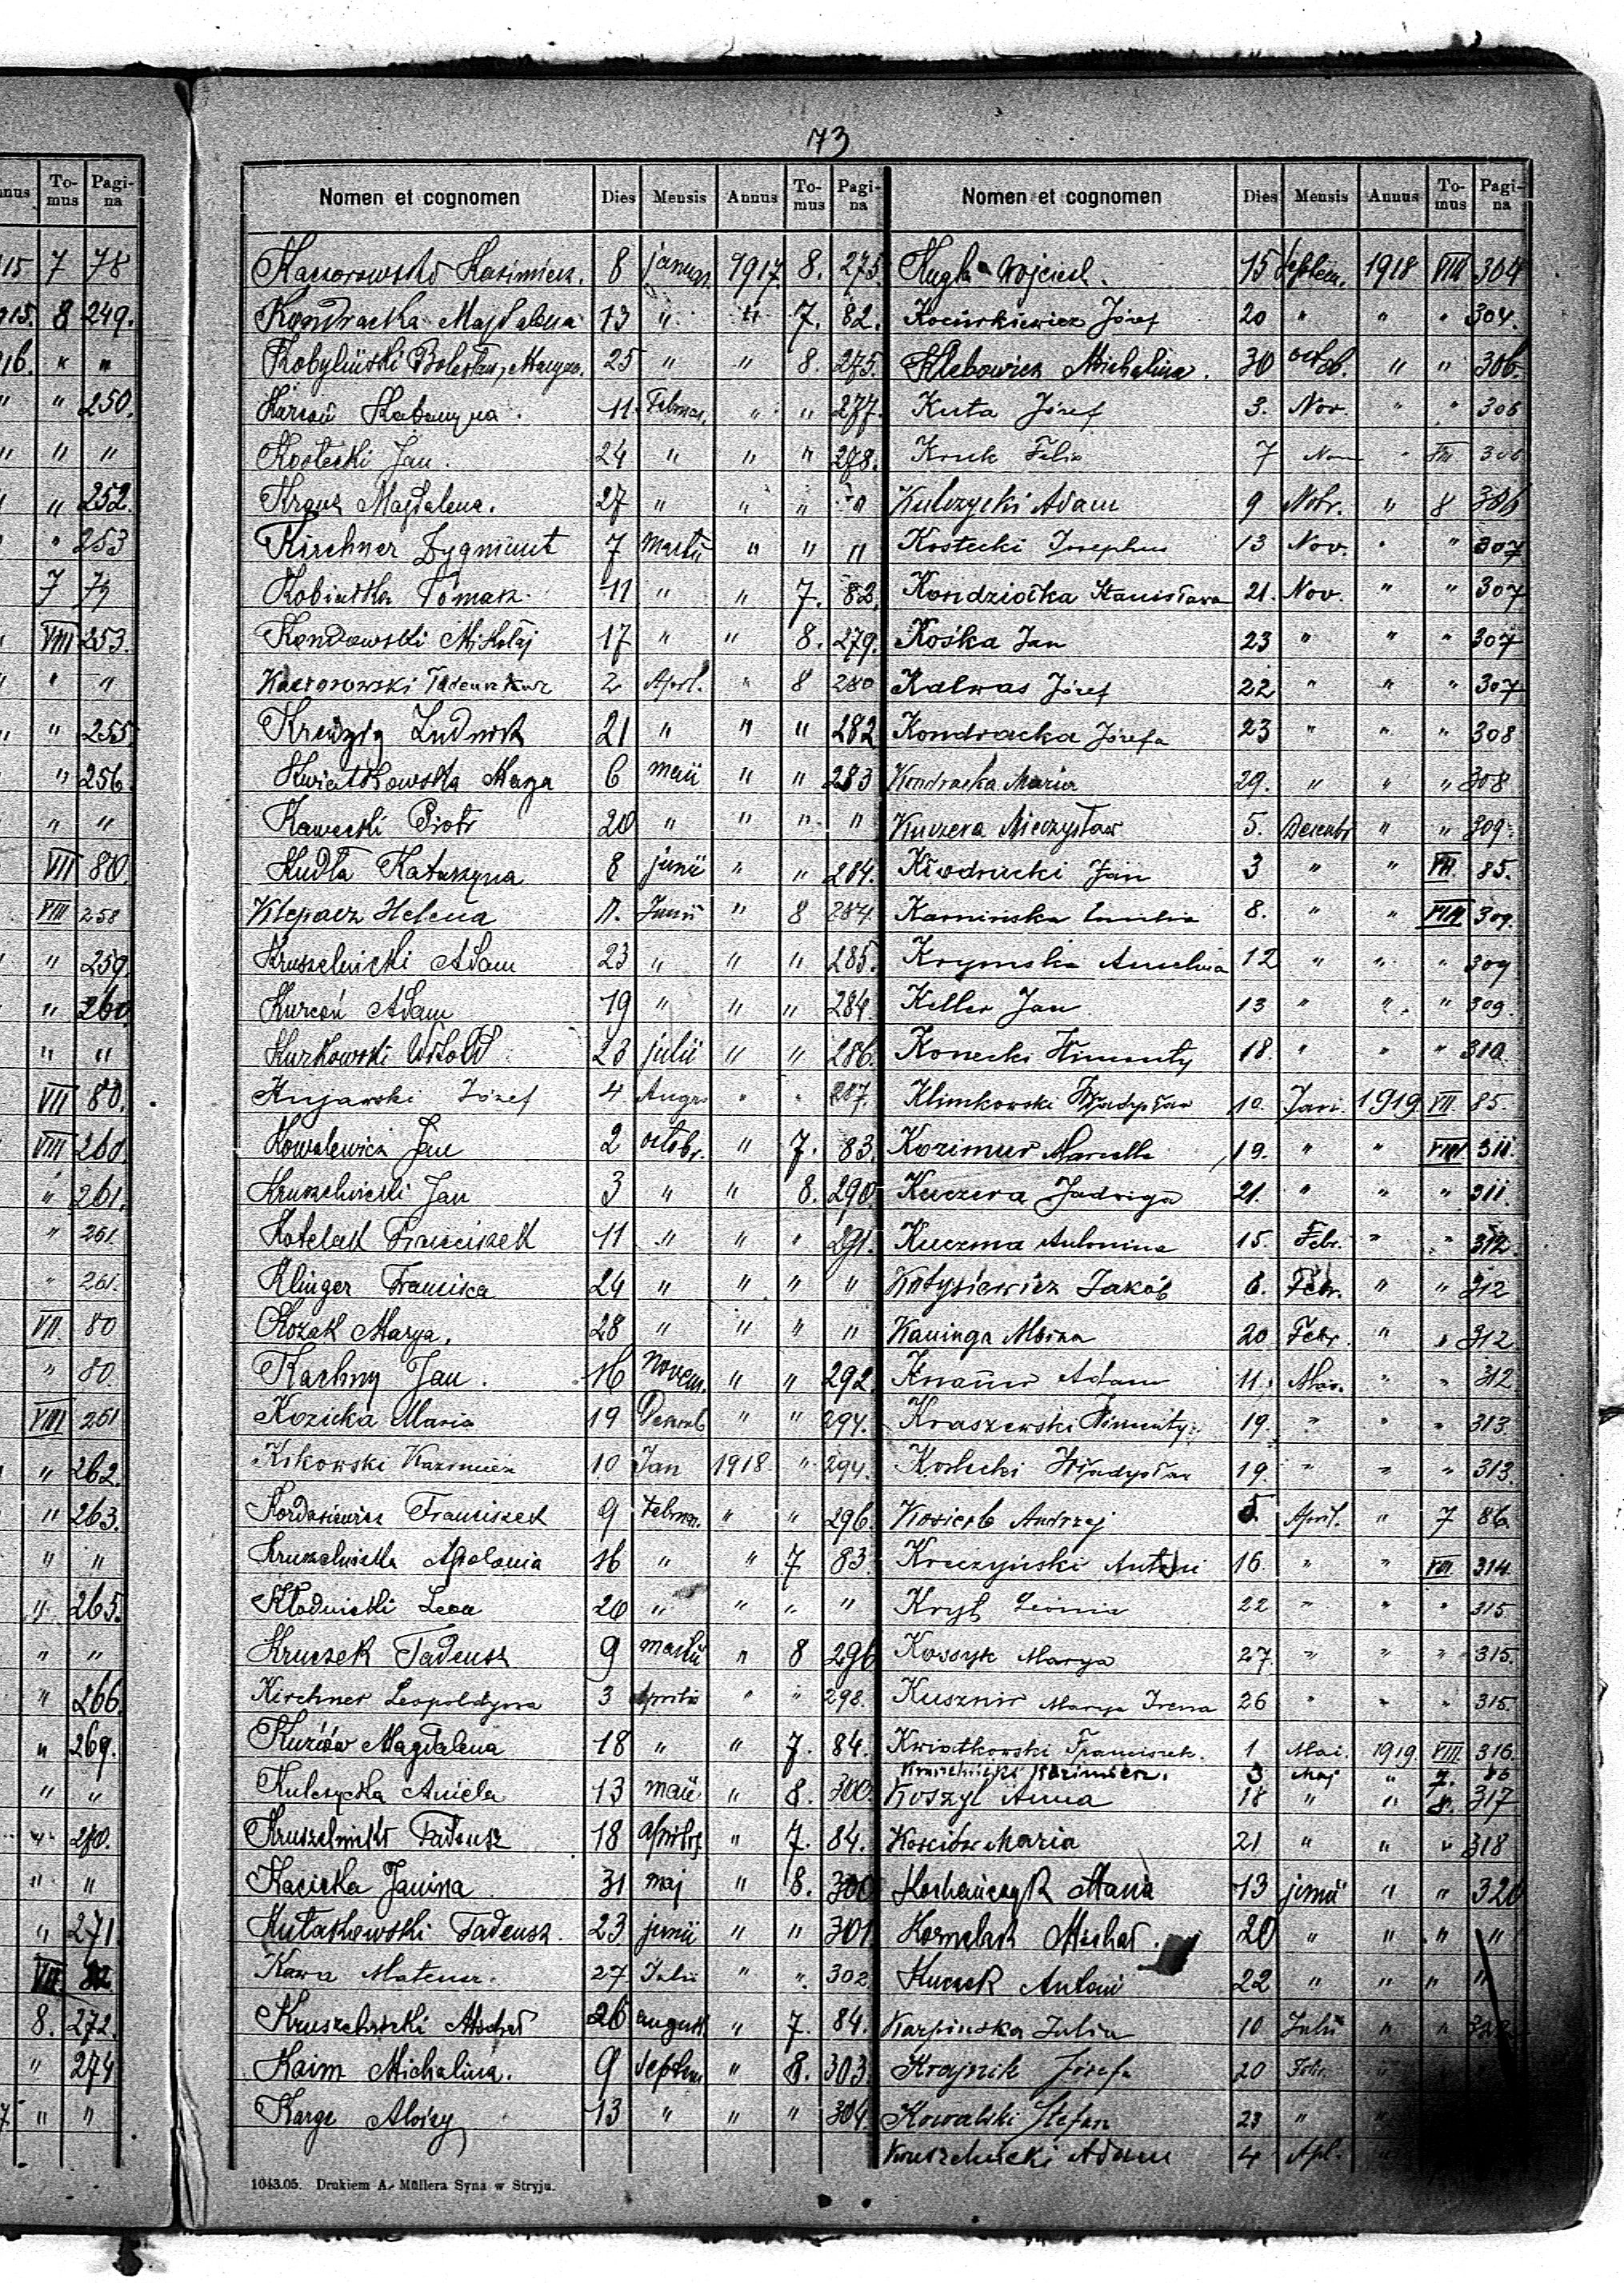 73
nnus To-mus Pagi-na
15 7 78
915. 8 249.
916. " "
" " 250.
" " "
" " 252.
" " 253
7 79
VIII 253.
" "
" 255.
" 256.
" "
VII 80.
VIII 258
" 259.
" 260.
" "
VII 80.
VIII 260.
" 261.
" 261
" 261.
VII. 80
" 80.
VIII 261
" 262.
" 263.
" "
" 265.
" "
" 266.
" 269.
" "
" 270.
" "
" 271.
VII.
8. 272.
" 274
7. " "
Nomen et cognomen Dies Mensis Annus To-mus Pagi-na
Kaczorowski Kazimierz. 8 januar. 1917. 8. 275.
Kondracka Magdalena 13 " " 7. 82.
Kobyliński Bolesław, 25 " " 8. 275.
Kurcoń Katarzyna. 11. Februar. " " 277.
Kostecki Jan. 24 " " " 278.
Kraus Magdalena. 27 " " " "
Kirchner Zygmunt 7 Martii " " "
Kobiałka Tomasz. 11 " " 7. 82.
Kondowski Mikołaj 17 " " 8. 279.
Kaczorowski 2 April. " 8 280
Ludwik 21 " " " 282
Kwiatkowska Marya 6 maii " " 283
Kawecki Piotr 20 " " " "
Kudła Katarzyna 8 junii " " 284.
Klepacz Helena 11. Junii " 8 284.
Kruszelnicki Adam 23 " " " 285.
Kurcoń Adam 19 " " " 284.
Kurkowski Witold 23 julii " " 286.
Kujawski Józef 4 Augu. " " 287.
Kowalewicz Jan 2 octobr. " 7. 83.
Kruszelnicki Jan 3 " " 8. 290.
Kotelak Franciszek 11 " " " 291.
Klinger Francisca 24 " " " "
Kozak Marya. 28 " " " "
Kachny Jan. 16 Novem. " " 292.
Kozicka Maria 19 Decemb " " 294.
Kikowski Kazimierz 10 Jan 1918. " 294.
Kordasiewicz Franciszek 9 Februar. " " 296.
Kruszelnicka Apolonia 16 " " 7 83.
Kłodnicki Leon 20 " " " "
Kruczek Tadeusz 9 martii " 8 296
Kirchner Leopoldyna 3 Aprilis " " 298.
Magdalena 18 " " 7. 84.
Kulczycka Aniela 13 maii " 8. 300.
Kruszelnicki Tadeusz 18 aprilis " 7. 84.
Kacicka Janina 31 maj " 8. 300
Kułakowski Tadeusz. 23 junii " " 301.
Kawa Mateusz. 27 Julii " " 302
Kruszelnicki Michał 26 august. " 7. 84.
Kaim Michalina. 9 Septem " 8. 303.
Karge Aloizy 13 " " " 304.
1043.05. Drukiem A. Müllera Syna w Stryju.
Nomen et cognomen Dies Mensis Annus To-mus Pagi-na
Kugla Wojciech. 15 Septem. 1918 VIII 304
Kociurkiewicz Józef 20 " " " 304.
Klebowicz Michalina. 30 octob. " " 306.
Kuta Józef 3. Nov. " " 306
Kruk Felix 7 Nov " VIII 306
Kulczycki Adam 9 Nobr. " 8 306
Kostecki Josephus 13 Nov. " " 307
Kondziołka Stanisława 21. Nov. " " 307
Kośka Jan 23 " " " 307
Kalwas Józef 22 " " " 307
Kondracka Józefa 23 " " " 308
Kondracka Maria 29. " " " 308
Kuczera Mieczysław 5. Decembr " " 309.
Jan 3 " " VII. 85.
Kamińska Emilia 8. " " VIII 309.
Krymska Anselma 12 " " " 309
Keller Jan 13 " " " 309.
Konecki 18. " " " 310.
Klimkowski Władysław 10. Jan. 1919 VII. 85.
Kozimur Marcella 19. " " VIII 311.
Kuczera Jadwiga 21. " " " 311
Kuczma Antonina 15. Febr. " " 312.
Kotysiewicz Jakób 6. Febr. " " 312
Kaninga 20 Febr. " " 312.
Adam 11. Mar. " " 312
Kraszewski 19. " " " 313.
Kostecki Władysław 19. " " " 313.
Andrzej 5. April. " 7 86
Kruczyński Antoni 16. " " VIII. 314.
Kryś Leonia 22 " " " 315
Marya 27. " " " 315.
Kusznir Marya Irena 26 " " " 315.
Kwiatkowski Franciszek. 1 Mai. 1919. VIII. 316.
Kruszelnicki Kazimierz. 3 Maj " 7. 86
Koszyl Anna 18 " " 8. 317
Maria 21 " " " 318
Kochańczyk Maria 13 junii " " 320
Kornelak Michał. 20 " " " "
Kuczek Antoni 22 " " " "
Karpinska Julia 10 Julii " "
Krajnik Józefa 20 Febr. "
Kowalski Stefan 23 " "
Kruszelnicki Adam 4 Apl.